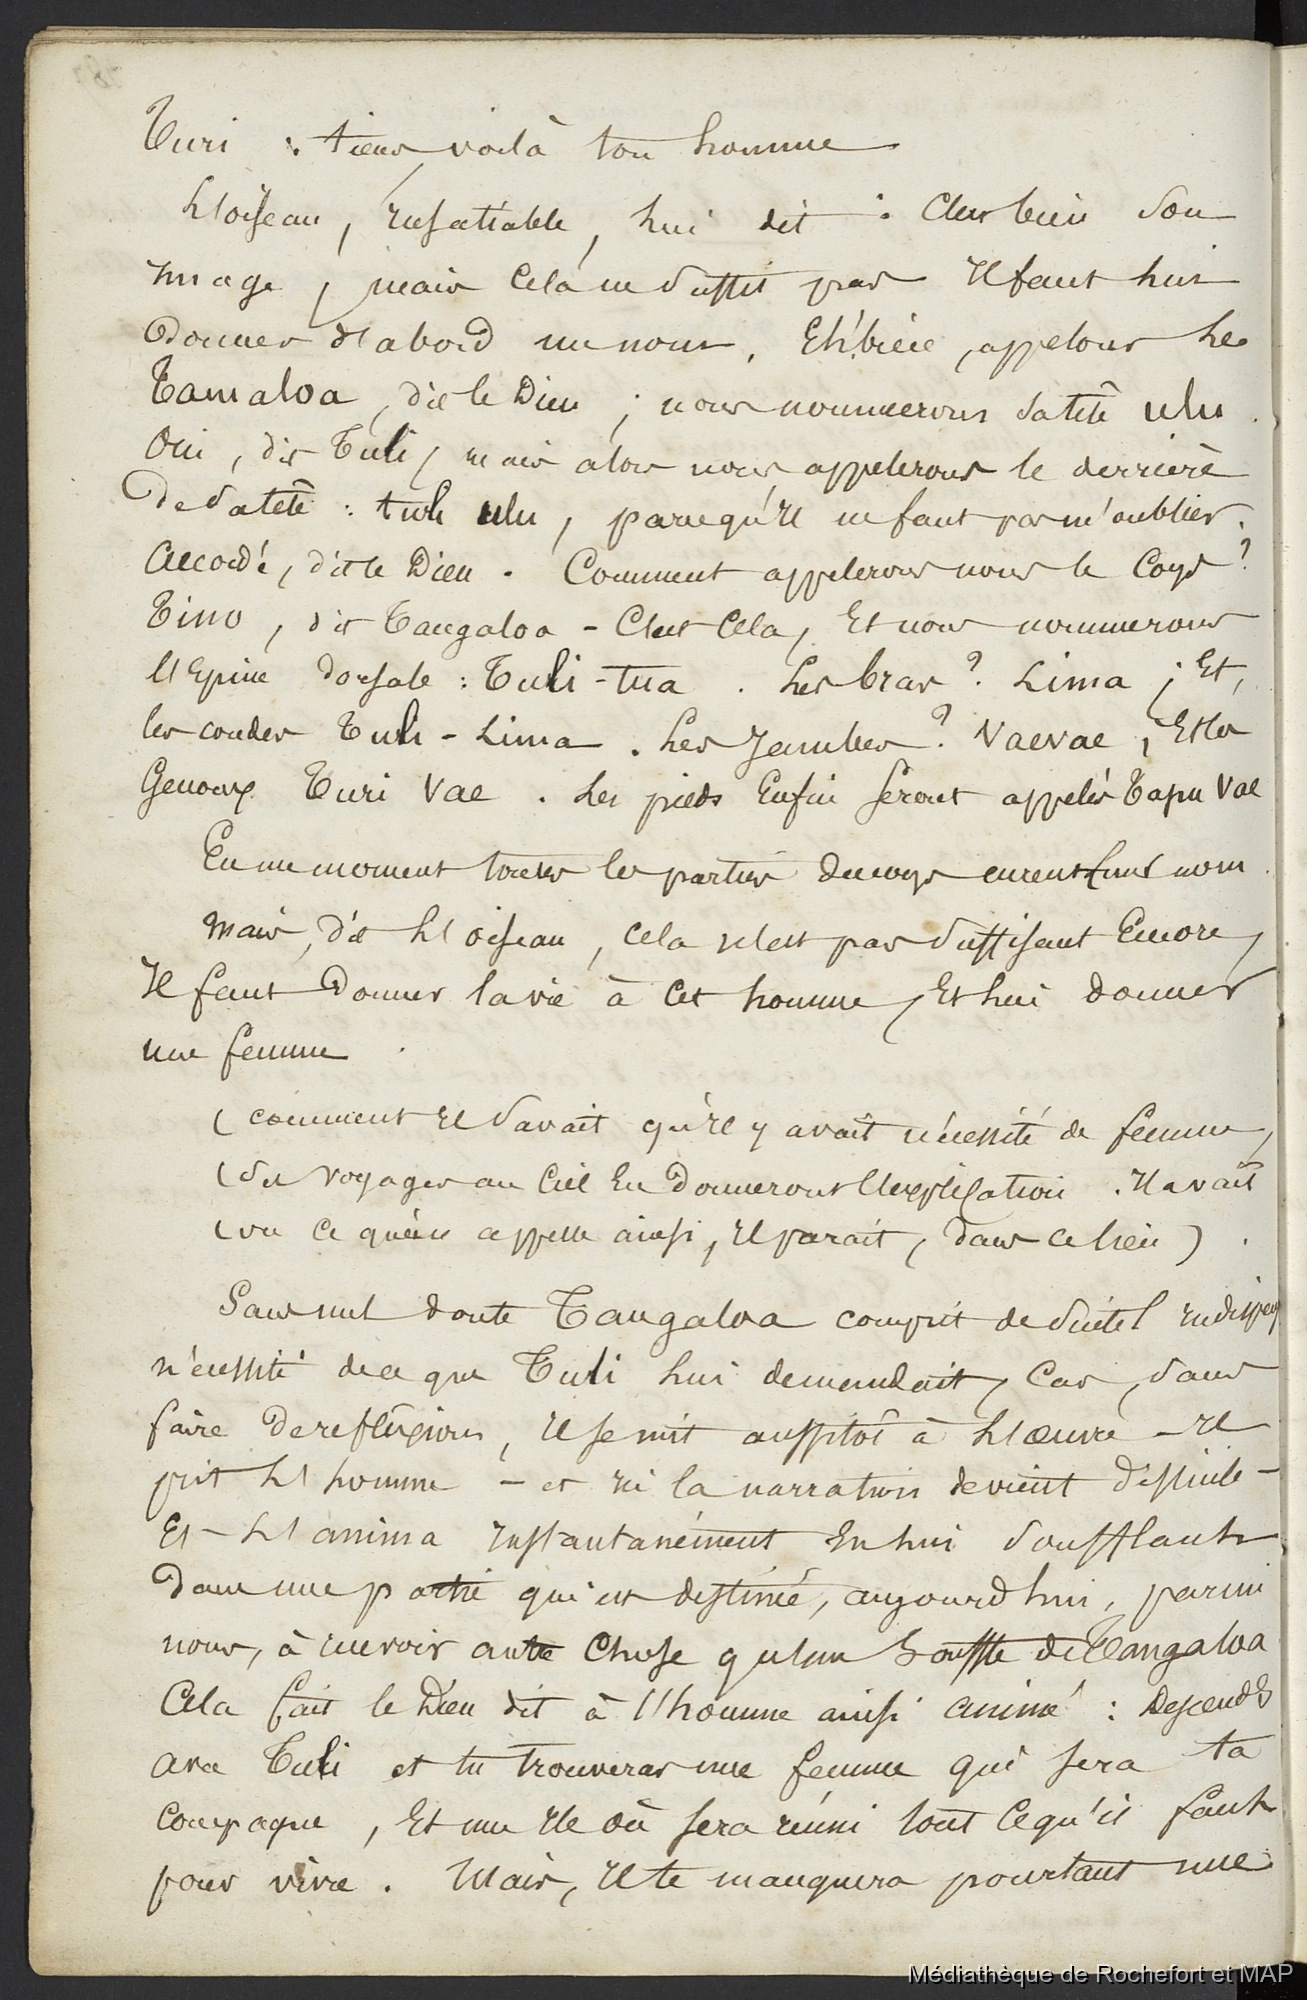 Turi : tiens voilà ton homme
L'oiseau, insatiable, lui dit : C'est bien son
image, mais cela ne suffit pas Il faut lui
donner d'abord un nom. Eh! bien, appelons le
Tamaloa, dit le Dieu ; nous nommerons sa tête ulu.
Oui, dit Tuli, mais alors nous appelerons le derrière
de sa tête : tuli ulu, parcequ'il ne faut pas m'oublier.
Accordé, dit le Dieu. Comment appelerons nous le corps?
Tino, dit Tangaloa - C'est cela, Et nous nommerons
l'Epine dorsale : Tuli-tua. Les bras? Lima ; Et,
les coudes Tuli-Lima. Les Jambes? Vaevae, Et les
Genoux Turi Vae. Les pieds Enfin seront appelés Tapu Vae
En un moment toutes les parties du corps eurent un nom.
Mais, dit L'oiseau, cela n'est pas suffisant Encore,
Il faut donner la vie à cet homme, Et lui donner
une femme.
( comment Il savait qu'Il y avait nécessité de femme,
( ses voyages au Ciel En donneront l'explication. Il avait
( vu ce qu'on appelle ainsi, Il parait, dans ce lieu ).
Sans nul doute Tangaloa comprit de suite l'
nécessité de ce que Tuli lui demandait, Car, sans
faire de reflexions, Il se mit aussitôt à L'œuvre - Il
prit L'homme - et ici la narration devient difficile -
Et - L'anima Instantanément En lui soufflant
dans une partie qui est destinée, aujourd'hui, parmi
nous, à recevoir autre chose qu'un souffle de Tangaloa
Cela fait le Dieu dit à l'homme ainsi animé : Descends
avec Tuli et tu trouveras une femme qui sera ta
compagne, Et une Ile où sera réuni tout ce qu'il faut
pour vivre. Mais, Il te manquera pourtant une
Médiathèque de Rochefort et MAP